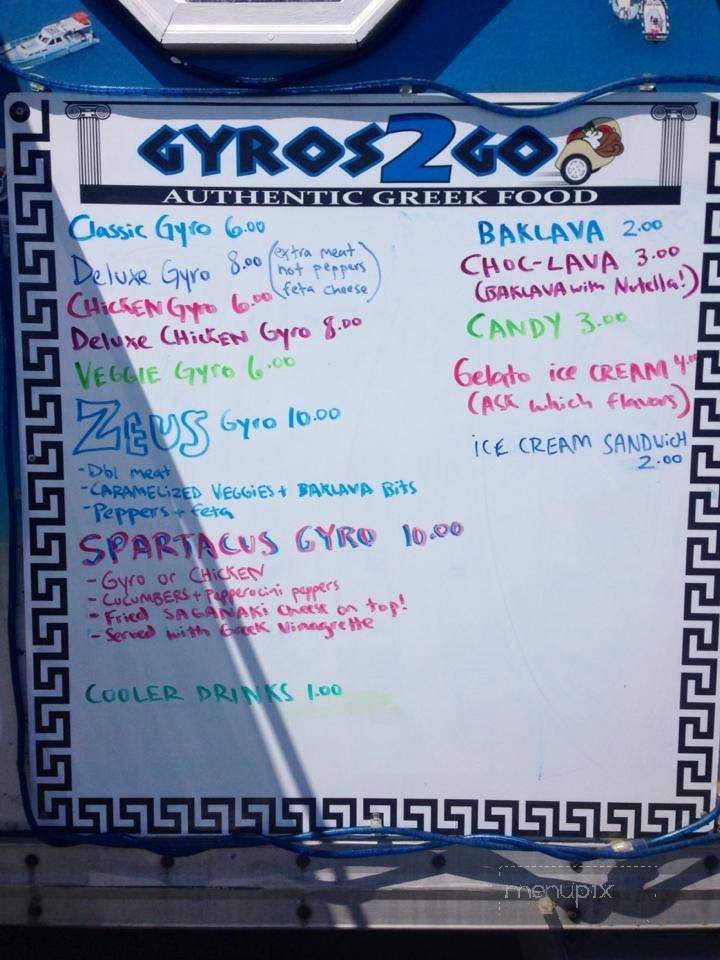 GYROS2GO
AUTHENTIC GREEK FOOD
Classic Gyro 6.00
Deluxe Gyro 8.00 (extra meat
hot peppers
feta cheese)
CHiCKEN Gyro 6.00
Deluxe CHiCKEN Gyro 8.00
VEGGIE Gyro 6.00
ZEUS Gyro 10.00
-Dbl meat
-CARAMELIZED VEGGIES + BAKLAVA Bits
-Peppers + feta
SPARTACUS GYRO 10.00
- Gyro or CHiCKEN
- CUCUMBERS + Pepperocini peppers
- Fried SAGANAKi Cheese on top!
- Served with Greek Vinagrette
COOLER DRINKS 1.00
BAKLAVA 2.00
CHOC-LAVA 3.00
(BAKLAVA with Nutella!)
CANDY 3.00
Gelato ice CREAM 4.00
(ASK which flavors)
iCE CREAM SANDWiCH
2.00
menupix